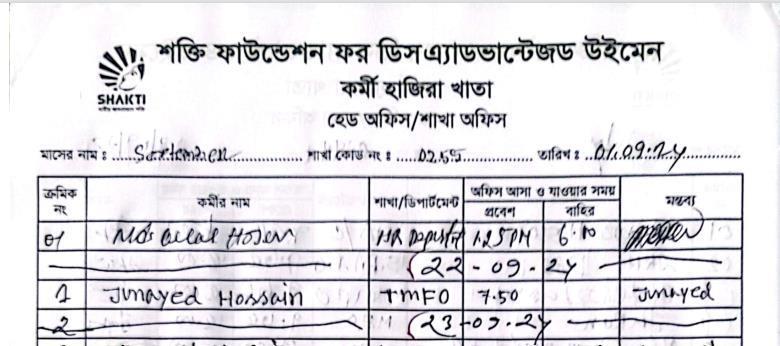 শক্তি ফাউন্ডেশন ফর ডিসএ্যাডভান্টেজড উইমেন
SHAKTI
কর্মী হাজিরা খাতা
হেড অফিস/শাখা অফিস
মাসের নাম : September শাখা কোড নং : 0255 তারিখ : 01.09.24
ক্রমিক নং কর্মীর নাম শাখা/ডিপার্টমেন্ট অফিস আসা ও যাওয়ার সময় মন্তব্য
প্রবেশ বাহির
01 Hosen HR 1.25 PM 6
22-09-24
1 Junayed Hossain TMFO 7.50 Junayed
2 23-09-24